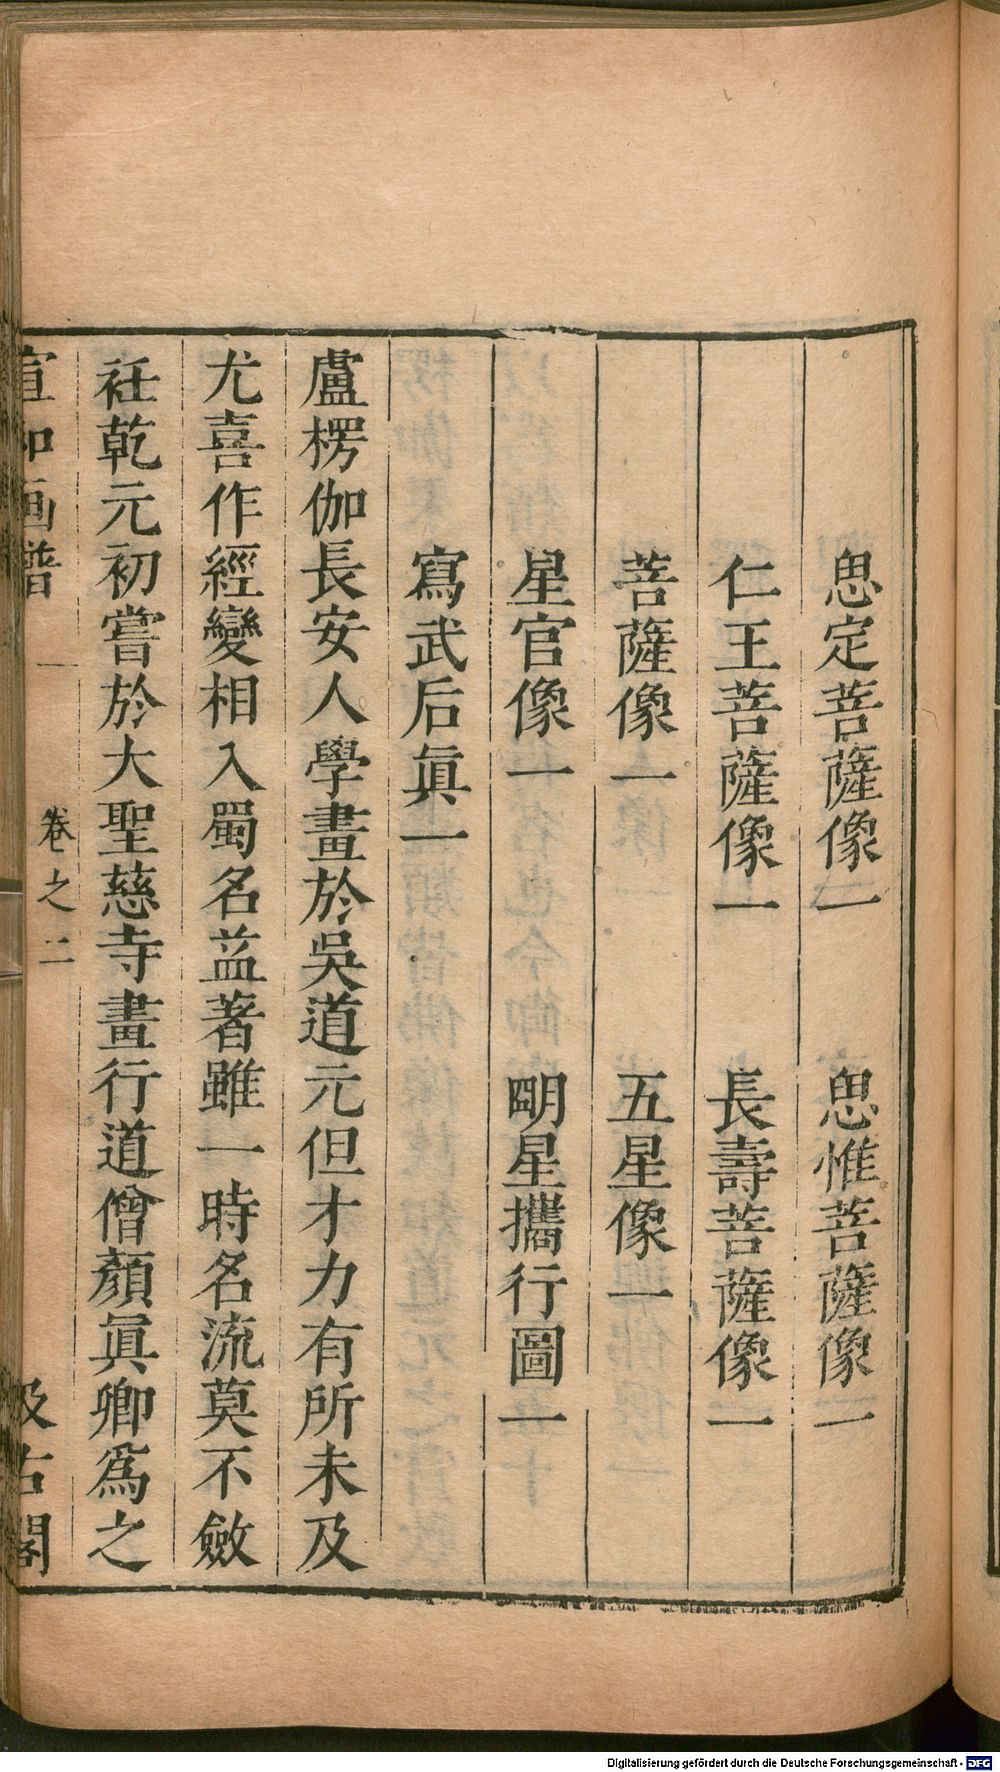 思定菩薩像一　思惟菩薩像一
仁王菩薩像一　長壽菩薩像一
菩薩像一　五星像一
星官像一　明星攜行圖一
寫武后眞一
盧楞伽長安人學畫於吳道元但才力有所未及
尤喜作經變相入蜀名益著雖一時名流莫不斂
衽乾元初嘗於大聖慈寺畫行道僧顏眞卿爲之
宣和画譜　卷之二　汲古閣
Digitalisierung gefördert durch die Deutsche Forschungsgemeinschaft - DFG